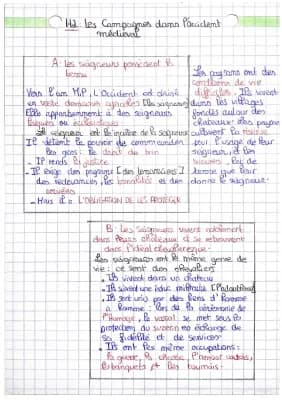 H2: Les Campagnes dans l'Occident
médiéval
A: les seigneurs possèdent la
terre
Vers l'an M.P, L'Occident est divisé
en vastes domaines agricoles [les seigneuries]
Elles appartiennent à des seigneurs
laïques ou ecclésiastiques
Le seigneur est le maître de la seigneurie
Il détient le pouvoir de commander
les gens: le droit de ban
- Il rend la justice
- Il exige des paysans
des redevances, les banalités et des
corvées
- Mais il a L'OBLIGATION DE LES PROTÉGER
Les paysans ont des
conditions de vie
difficiles. Ils vivent
dans les villages
fondés autour des
châteaux. Les paysans
cultivent la
pour l'usage de leur
seigneur, et les
tenures, de
terre que leur
donne le seigneur.
B: Les seigneurs vivent noblement
dans leurs châteaux et se retrouvent
dans l'idéal chevaleresque.
Les seigneurs ont le même genre de
vie: ce sont des chevaliers
- Ils vivent dans un château
- Ils suivent une éduc militaire
- Ils sont unis par des liens d'homme
à homme: lors de la cérémonie de
l'hommage, le vassal se met sous la
protection du suzerain en échange de
sa fidélité et de services
- Ils ont les même occupations:
la guerre, la chasse, l'amour courtois,
les banquets et les tournois.